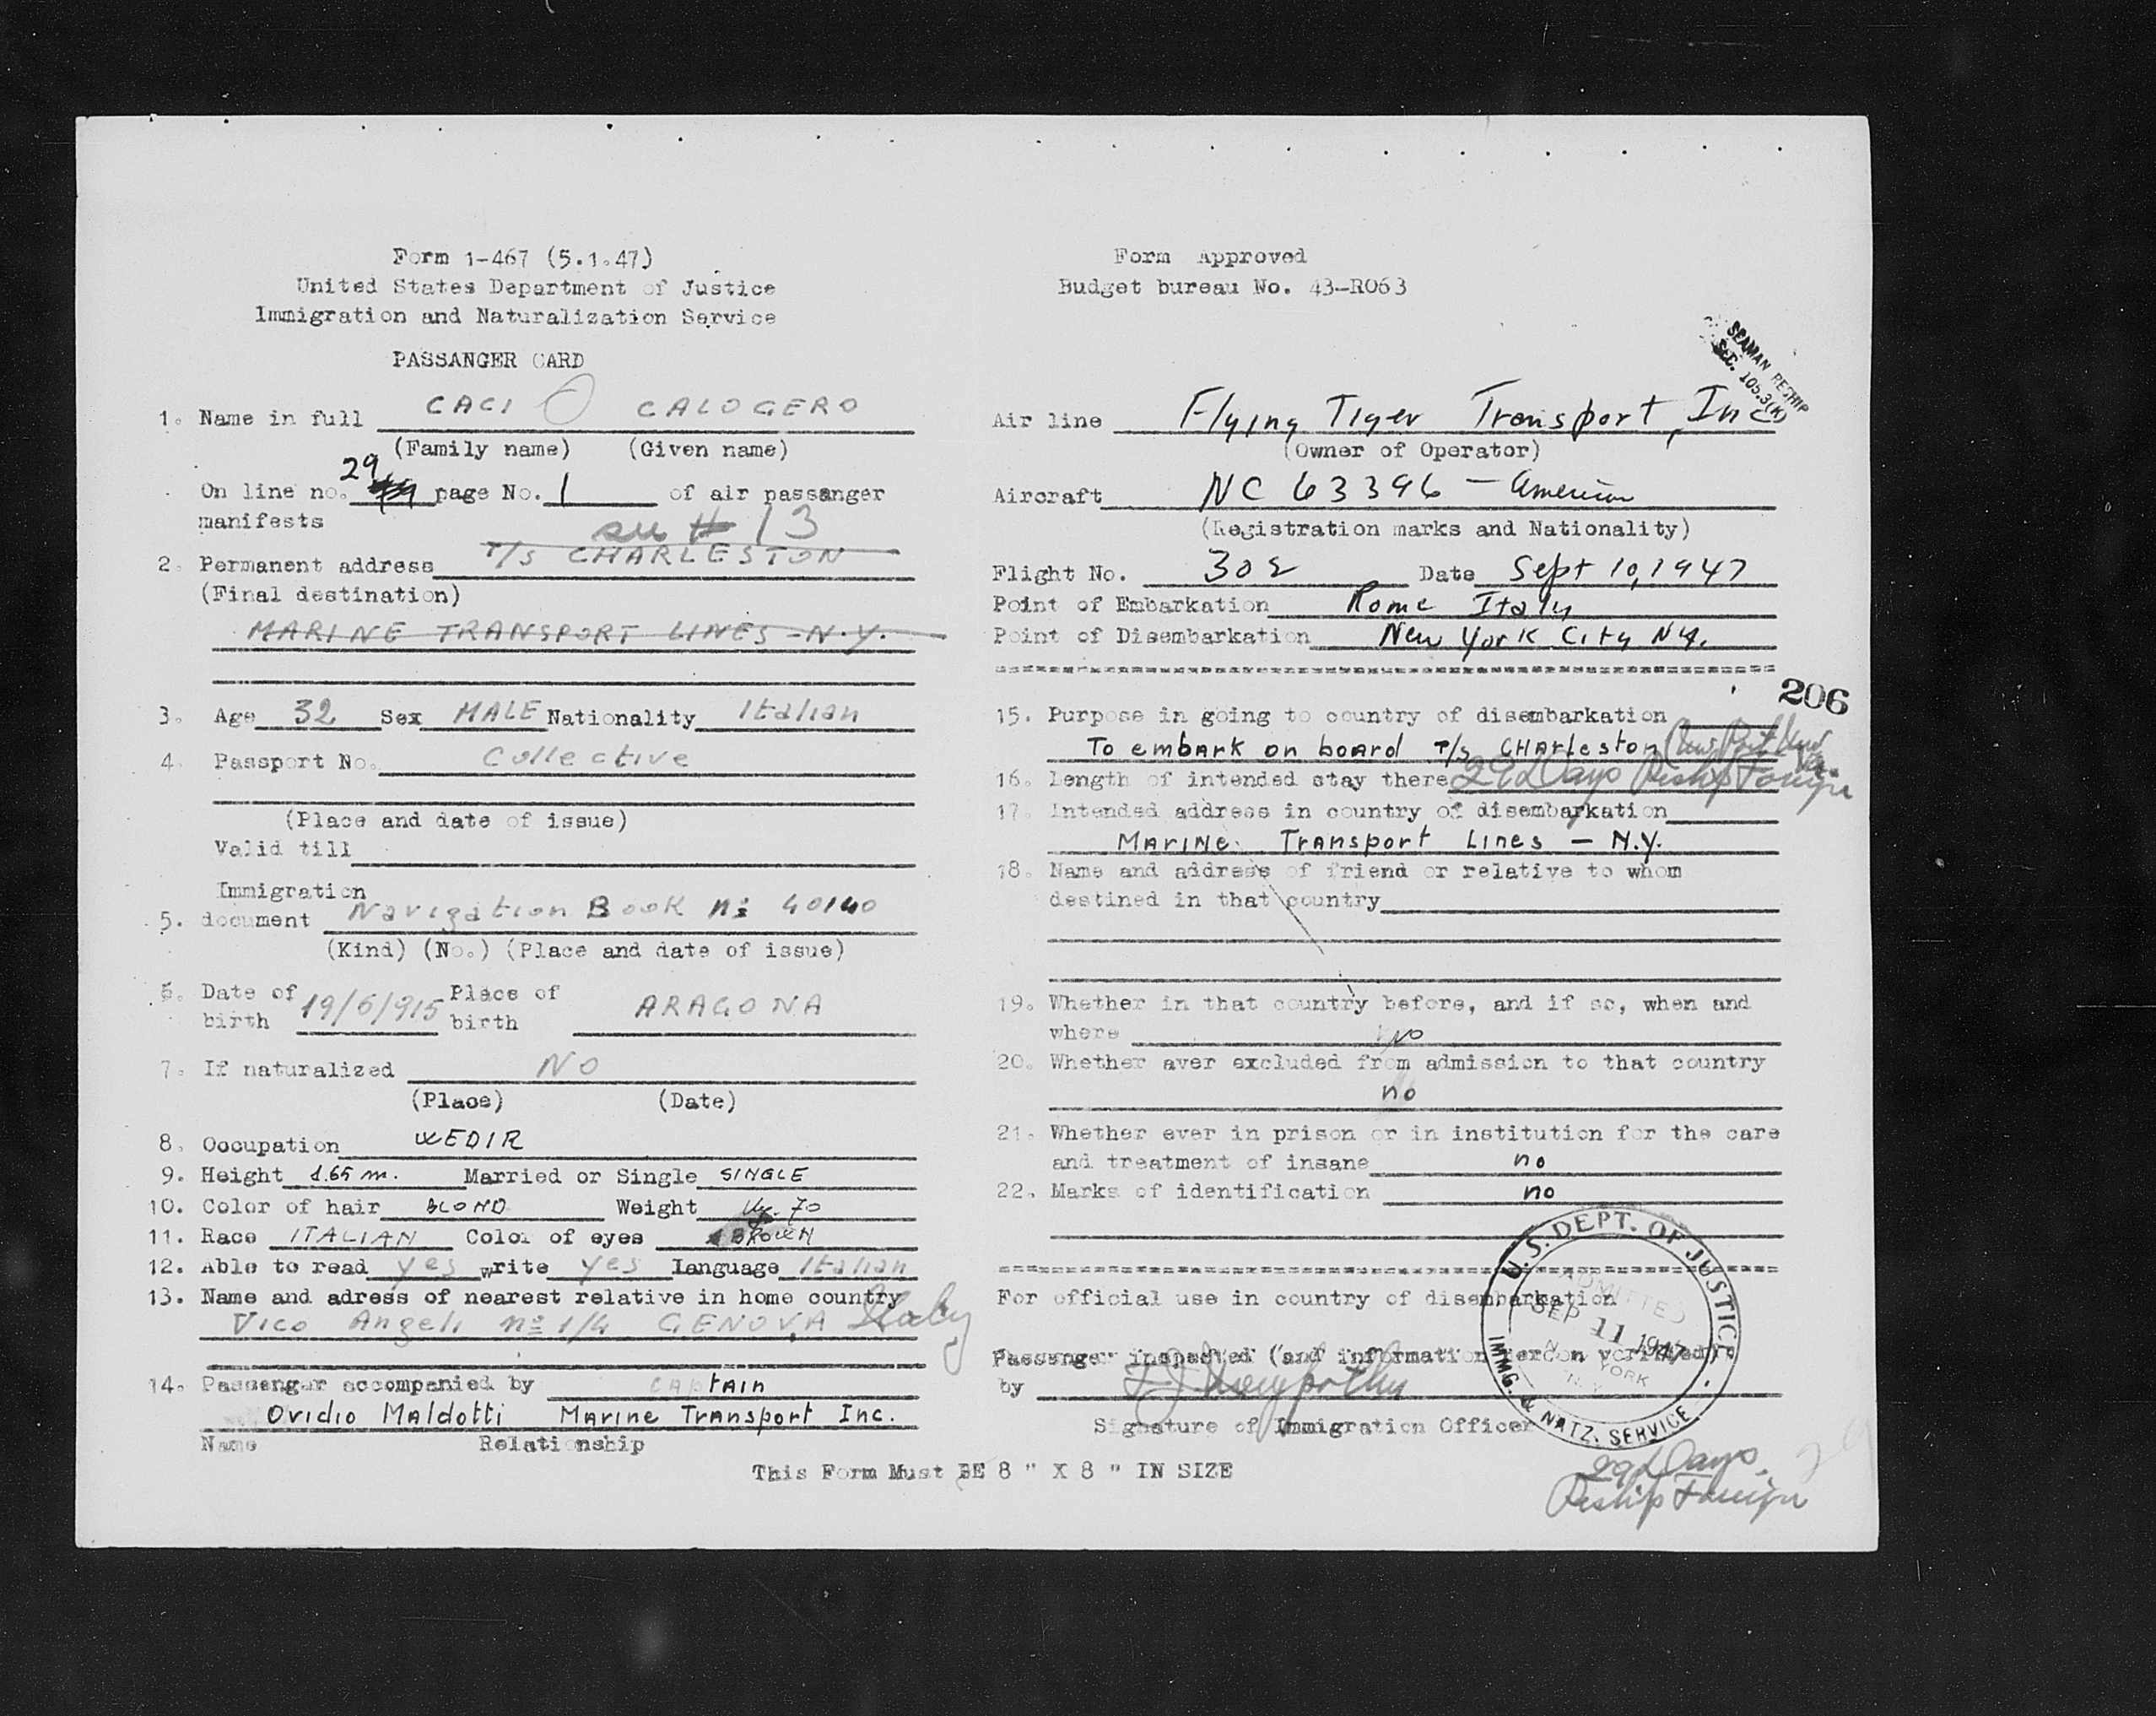 Form 1-467 (5.1.47)
United States Department of Justice
Immigration and Naturalization Service
PASSANGER CARD
1. Name in full CACI CALOGERO
(Family name) (Given name)
On line no. 29 page No. 1 of air passanger
manifests
see # 13
2. Permanent address T/S CHARLESTON
(Final destination)
MARINE TRANSPORT LINES - N.Y.
3. Age 32 Sex MALE Nationality Italian
4. Passport No. Collective
(Place and date of issue)
Valid till
Immigration
5. document Navigation Book n: 40140
(Kind) (No.) (Place and date of issue)
6. Date of 19/6/915 Place of ARAGONA
birth birth
7. If naturalized NO
(Place) (Date)
8. Occupation
9. Height 1.65 m. Married or Single SINGLE
10. Color of hair BLOND Weight Kg. 70
11. Race ITALIAN Color of eyes BROWN
12. Able to read yes write yes Language Italian
13. Name and adress of nearest relative in home country
Vico Angeli nº 1/4 GENOVA Italy
14. Passenger accompanied by CAPTAIN
Ovidio Maldotti Marine Transport Inc.
Name Relationship
This Form Must BE 8 " X 8 " IN SIZE
Form Approved
Budget bureau No. 43-R063
SEAMAN RESHIP
SEC. 105.3(K)
Air line Flying Tiger Transport, Inc
(Owner of Operator)
Aircraft NC 63396 - American
(Registration marks and Nationality)
Flight No. 302 Date Sept 10, 1947
Point of Embarkation Rome Italy
Point of Disembarkation New York City N.Y.
206
15. Purpose in going to country of disembarkation
To embark on board T/S CHArleston
16. Length of intended stay there 29 Days Reship Foreign
17. Intended address in country of disembarkation
MARINE Transport Lines - N.Y.
18. Name and address of friend or relative to whom
destined in that country
19. Whether in that country before, and if so, when and
where NO
20. Whether aver excluded from admission to that country
no
21. Whether ever in prison or in institution for the care
and treatment of insane no
22. Marks of identification no
For official use in country of disembarkation
Passenger inspected (and information hereon verified)
by
Signature of Immigration Officer
U.S. DEPT. OF JUSTICE
ADMITTED
SEP 11 1947
NEW YORK
N.Y.
IMMG. & NATZ. SERVICE
29 Days
Reship Foreign
29